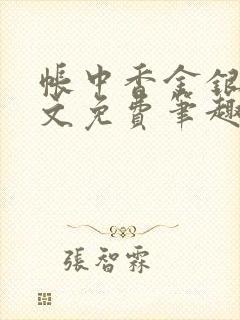 帳中香金銀
文免費筆趣
張智霖